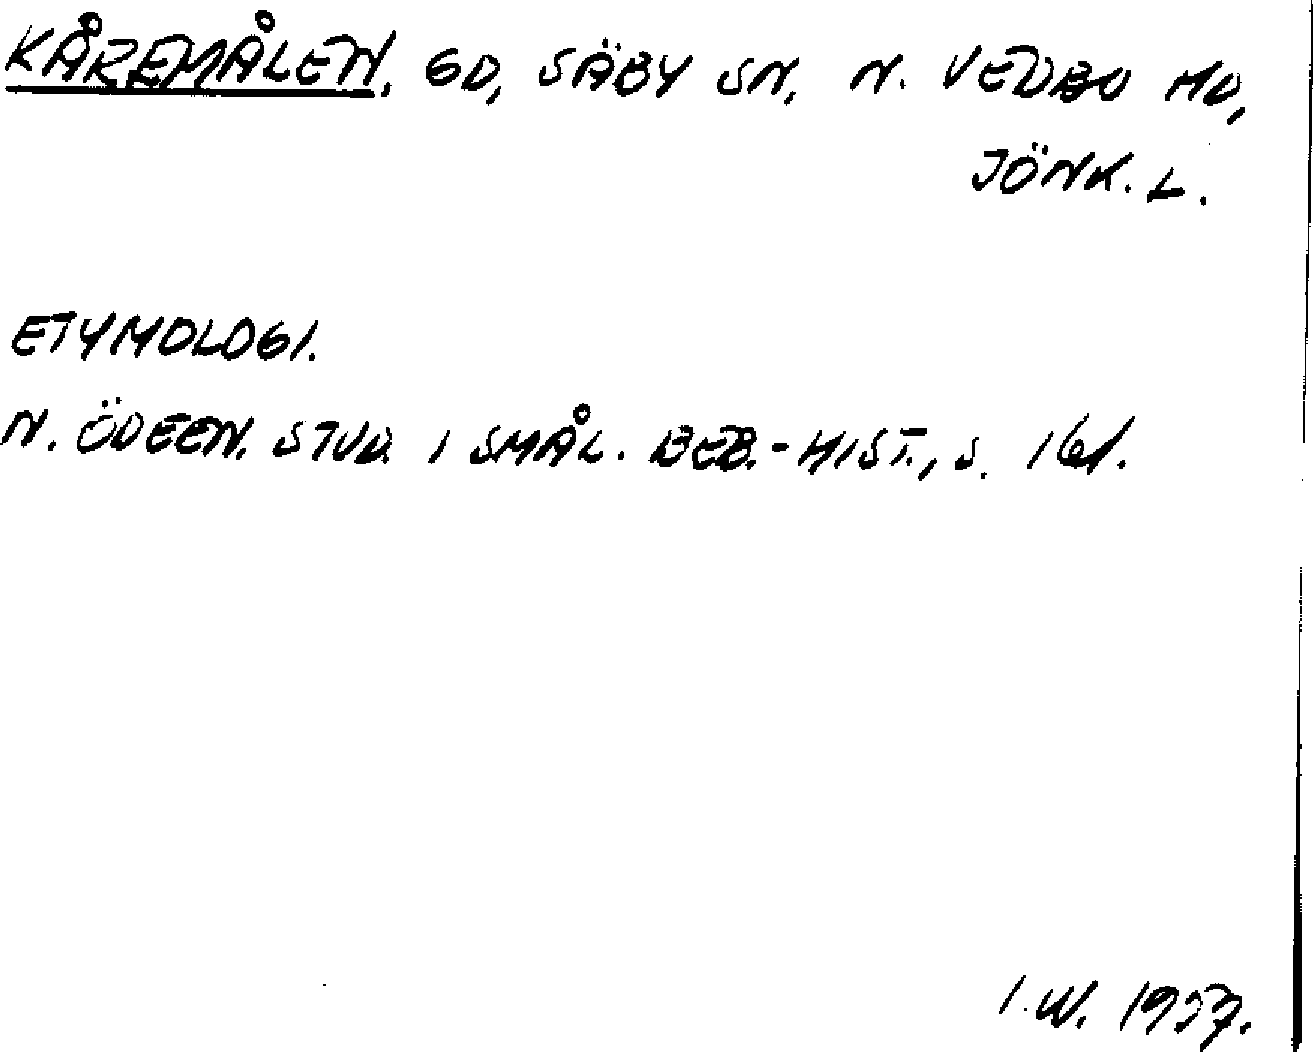 KÅREMÅLEN, GD, SÄBY SN, N. VEDBO HD,
JÖNK. L.
ETYMOLOGI.
N. ÖDEEN. STUD. I SMÅL. BEB.-HIST., S. 161.
I.W. 1957.